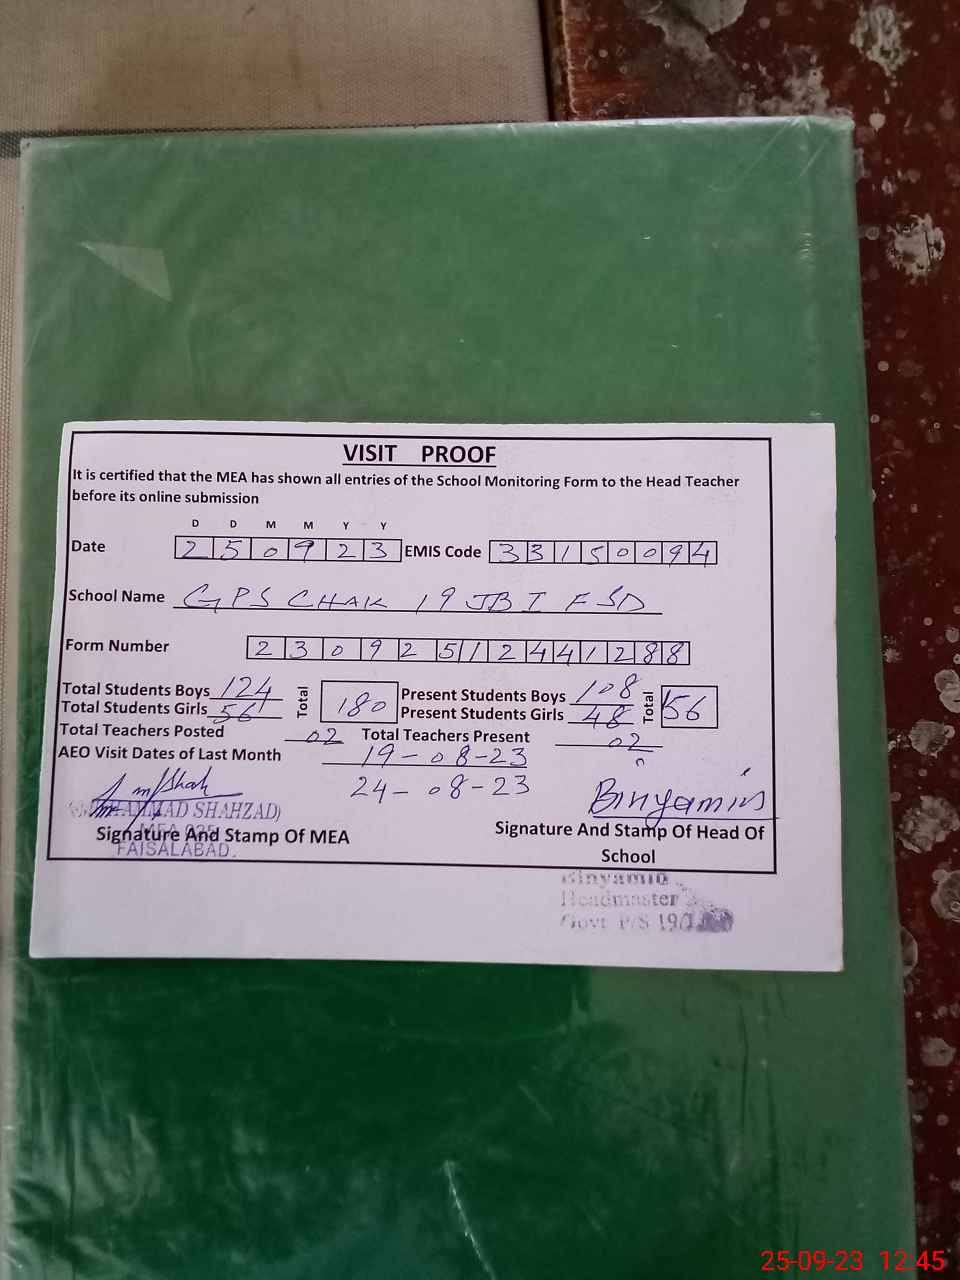 VISIT PROOF
It is certified that the MEA has shown all entries of the School Monitoring Form to the Head Teacher
before its online submission
D D M M Y Y
Date 2 5 0 9 2 3 EMIS Code 3 3 1 5 0 0 9 4
School Name GPS CHAK 19 JB I FSD
Form Number 2 3 0 9 2 5 1 2 4 4 1 2 8 8
Total Students Boys 124 Total 180 Present Students Boys 108 Total 156
Total Students Girls 56 Present Students Girls 48
Total Teachers Posted 02 Total Teachers Present 02
AEO Visit Dates of Last Month 19-08-23
24-08-23
Binyamin
SHAHZAD)
Signature And Stamp Of MEA
FAISALABAD.
Signature And Stamp Of Head Of
School
Binyamin
Headmaster
Govt P/S 19/
25-09-23 12:45